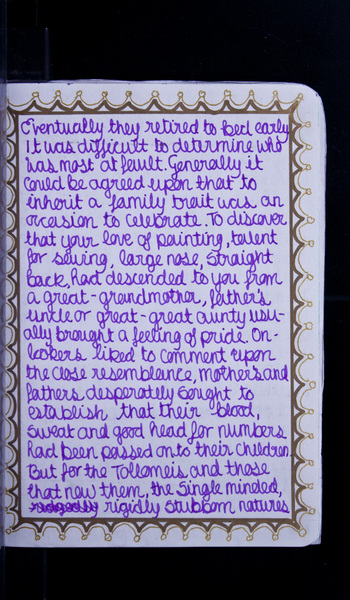 Eventually they retired to bed early
It was difficult to determine who
was most at fault. Generally it
could be agreed upon that to
inherit a family trait was an
occasion to celebrate. To discover
that your love of painting, talent
for sewing, large nose, straight
back, had descended to you from
a great-grandmother, father's
uncle or great-great aunty usu-
ally brought a feeling of pride. On-
lookers liked to comment upon
the close resemblance, mother's and
fathers desperately sought to
establish that their blood,
sweat and good head for numbers
had been passed onto their children.
But for the Tollomeis and those
that new them, the single minded,
rigidly stubborn natures